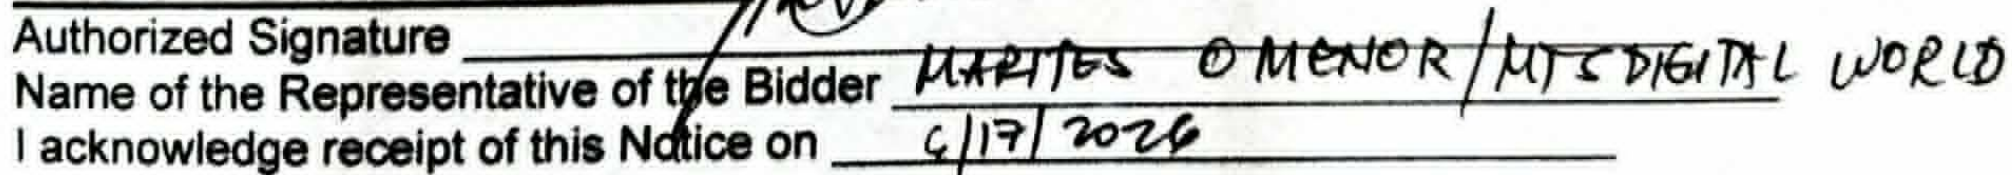 Authorized Signature
Name of the Representative of the Bidder MARITES O MENOR / MTS DIGITAL WORLD
I acknowledge receipt of this Notice on 6/17/2026